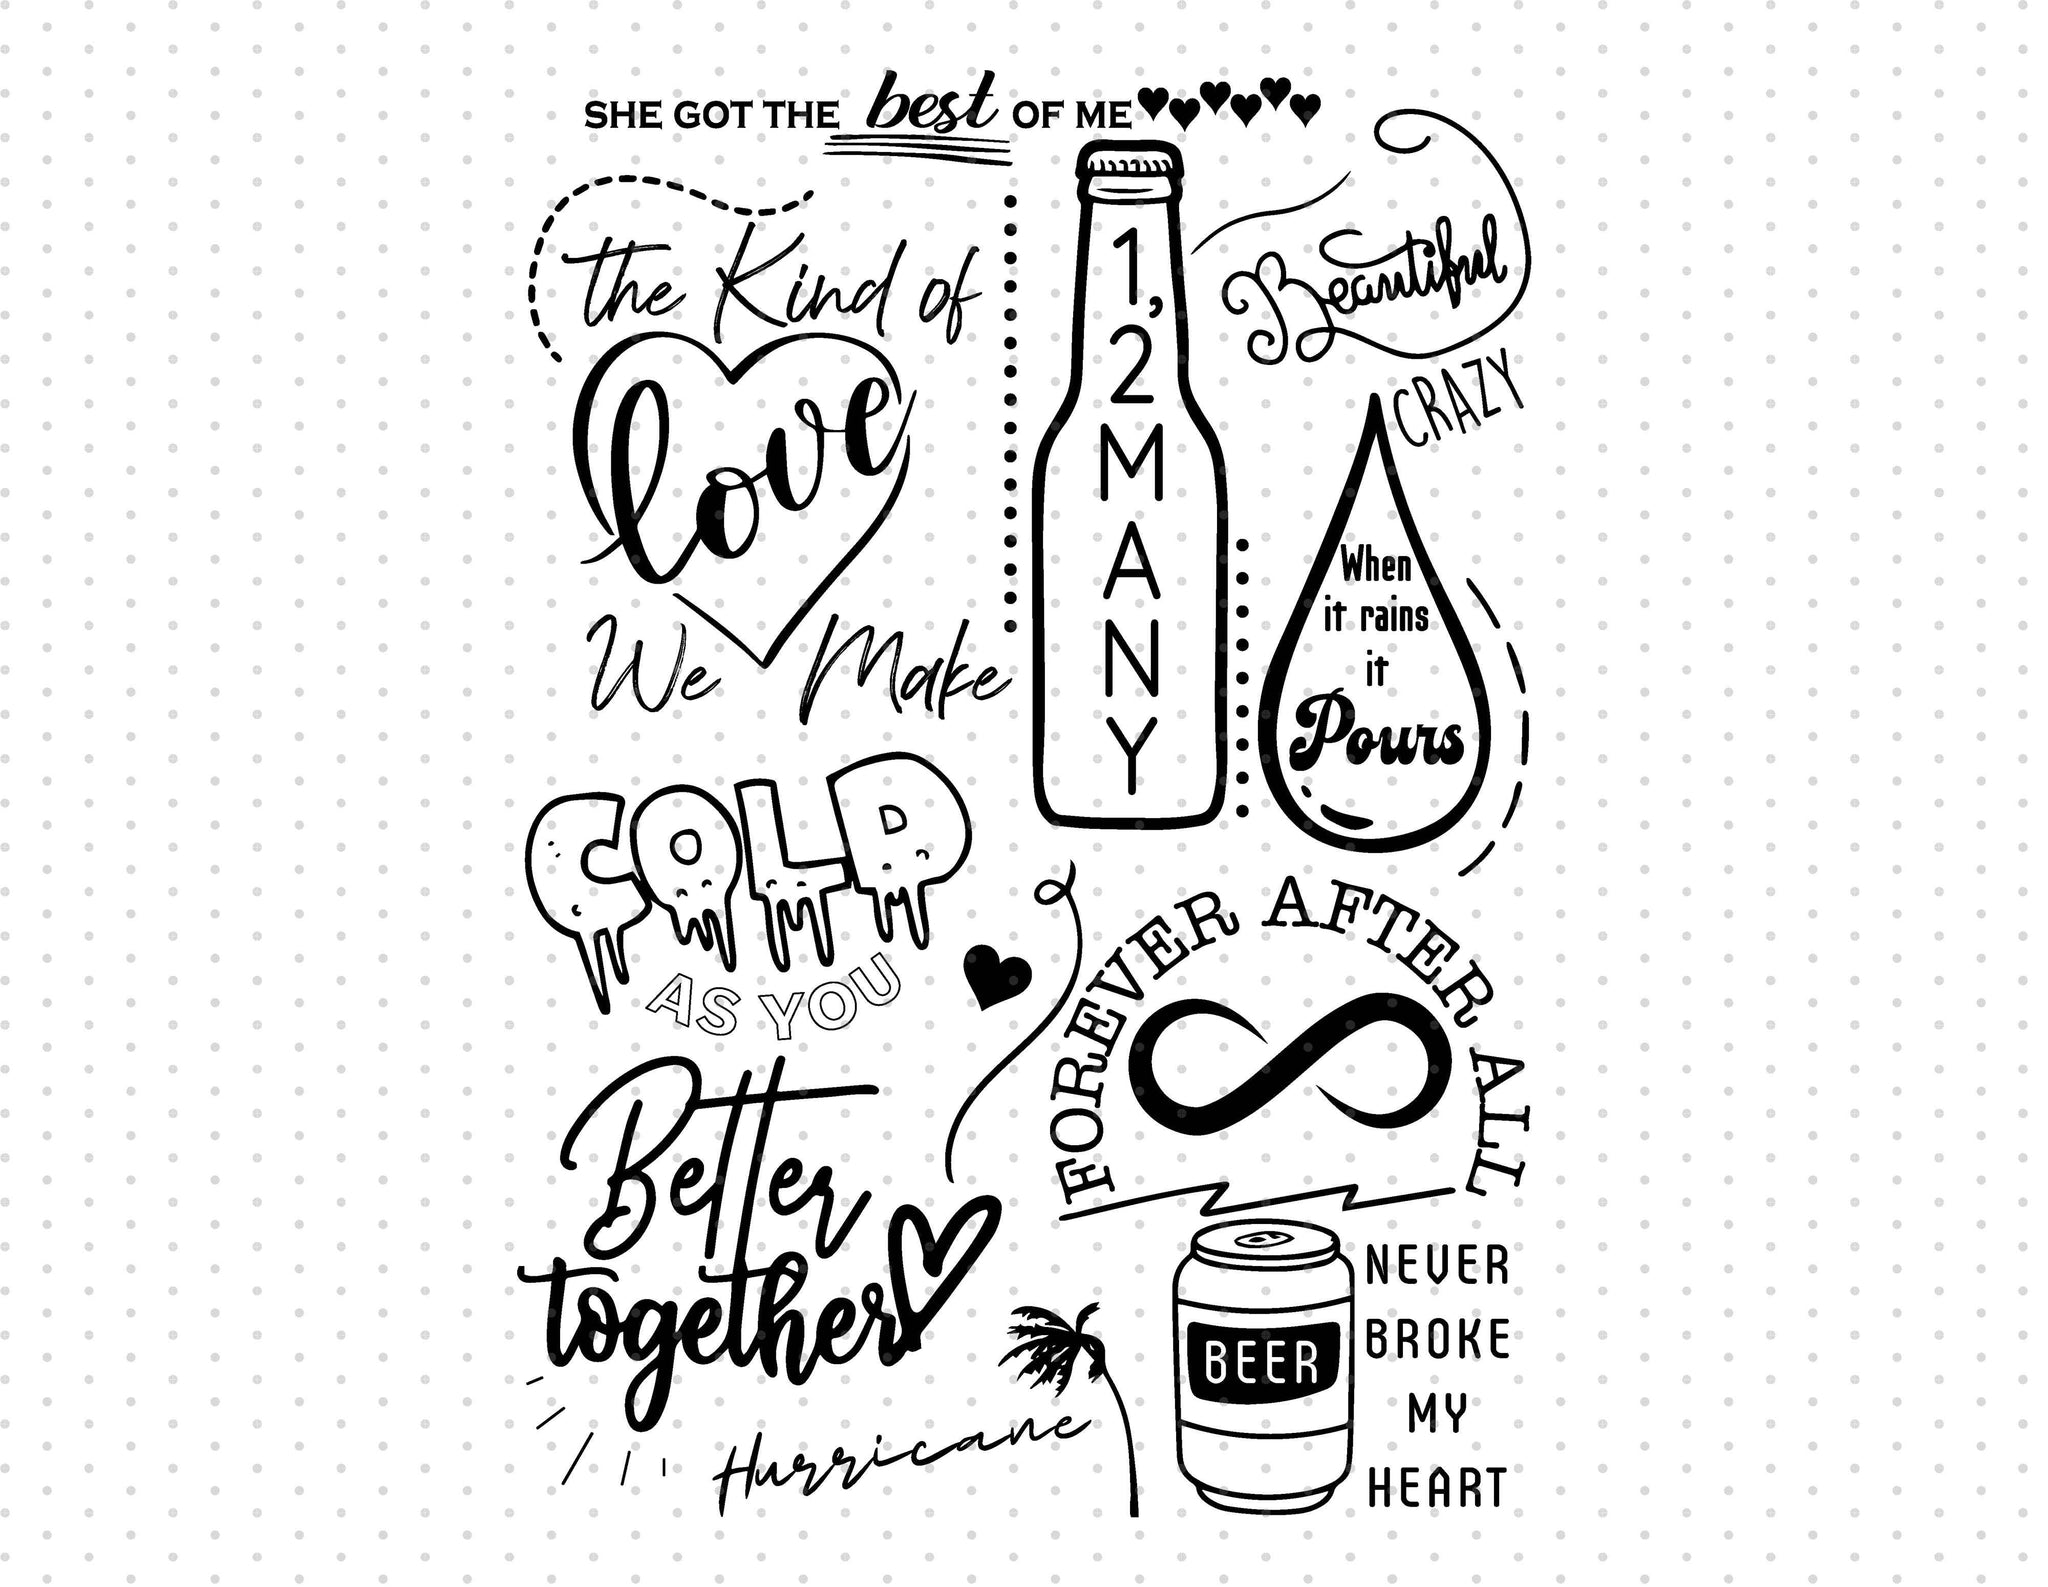 SHE GOT THE best OF ME
the Kind of
love
We Make
1,
2
M
A
N
Y
Beautiful
CRAZY
When
it rains
it
Pours
COLD
AS YOU
FOREVER AFTER ALL
Better
together
Hurricane
BEER
NEVER
BROKE
MY
HEART